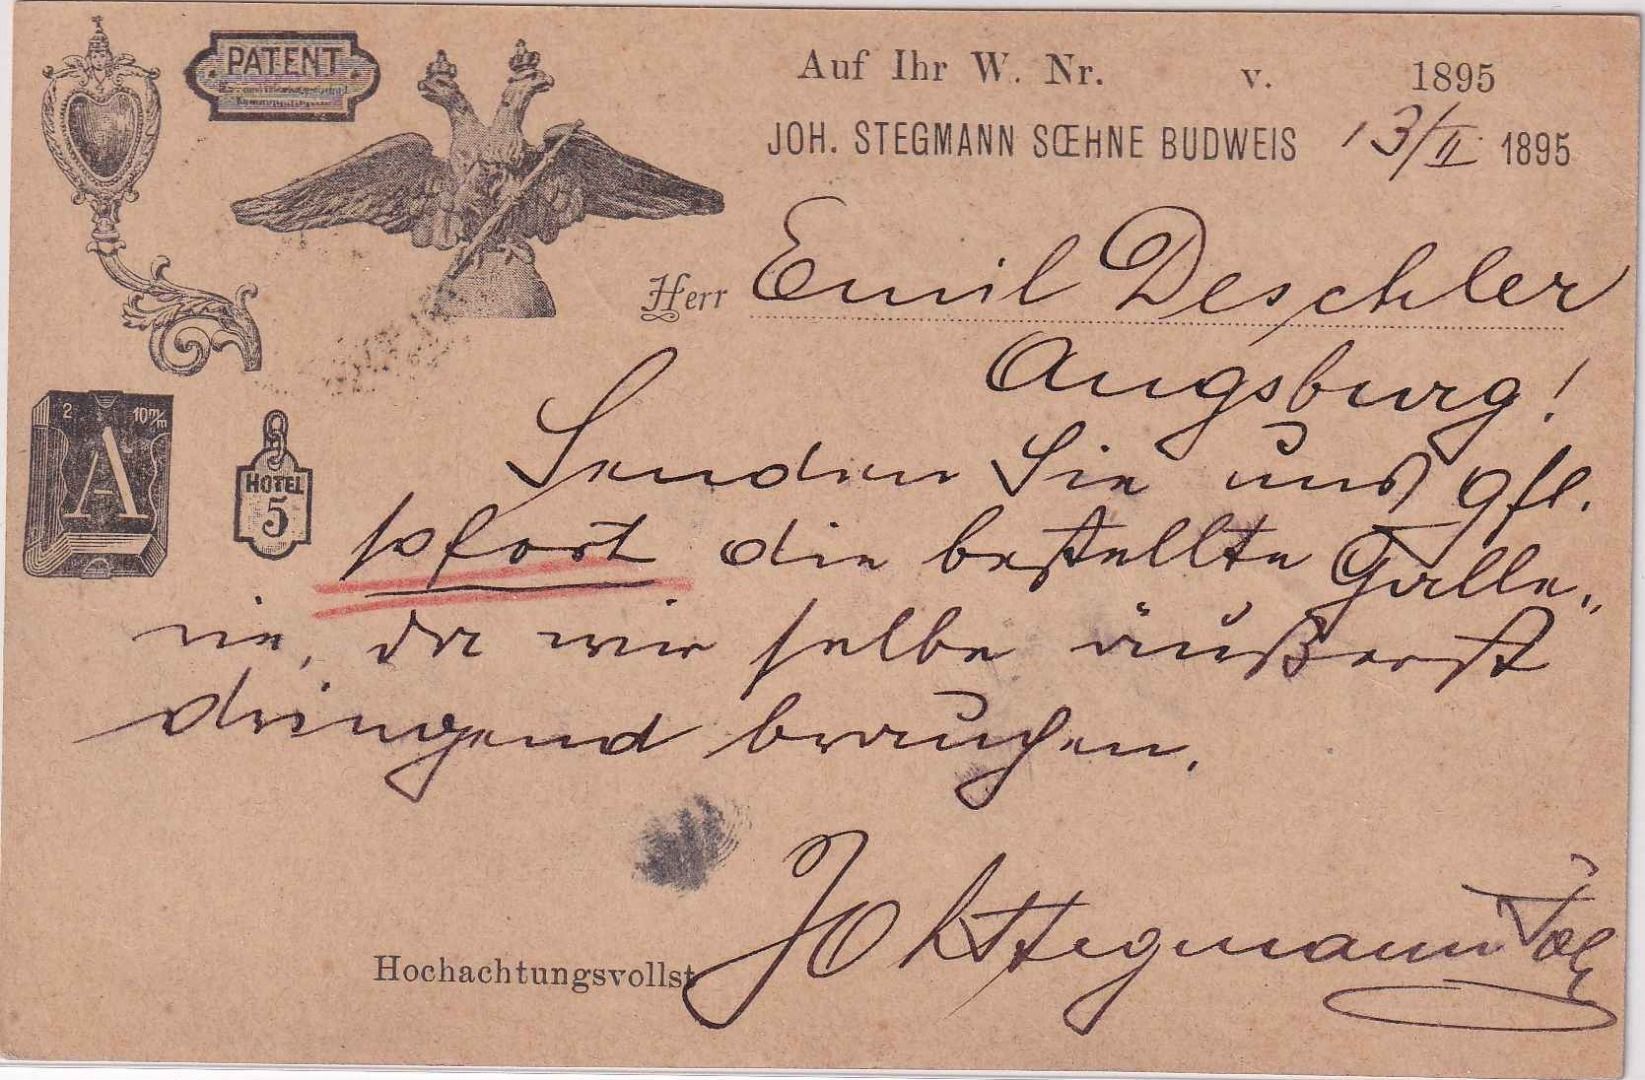 PATENT
Auf Ihr W. Nr. v. 1895
JOH. STEGMANN SŒHNE BUDWEIS 13/II 1895
Herr Emil Deschler
Augsburg!
2 10 m/m
A
HOTEL
5
Senden Sie uns gfl.
sofort die bestellte Galle„
rie, da wir selbe äußerst
dringend brauchen.
Hochachtungsvollst
Joh Stegmann